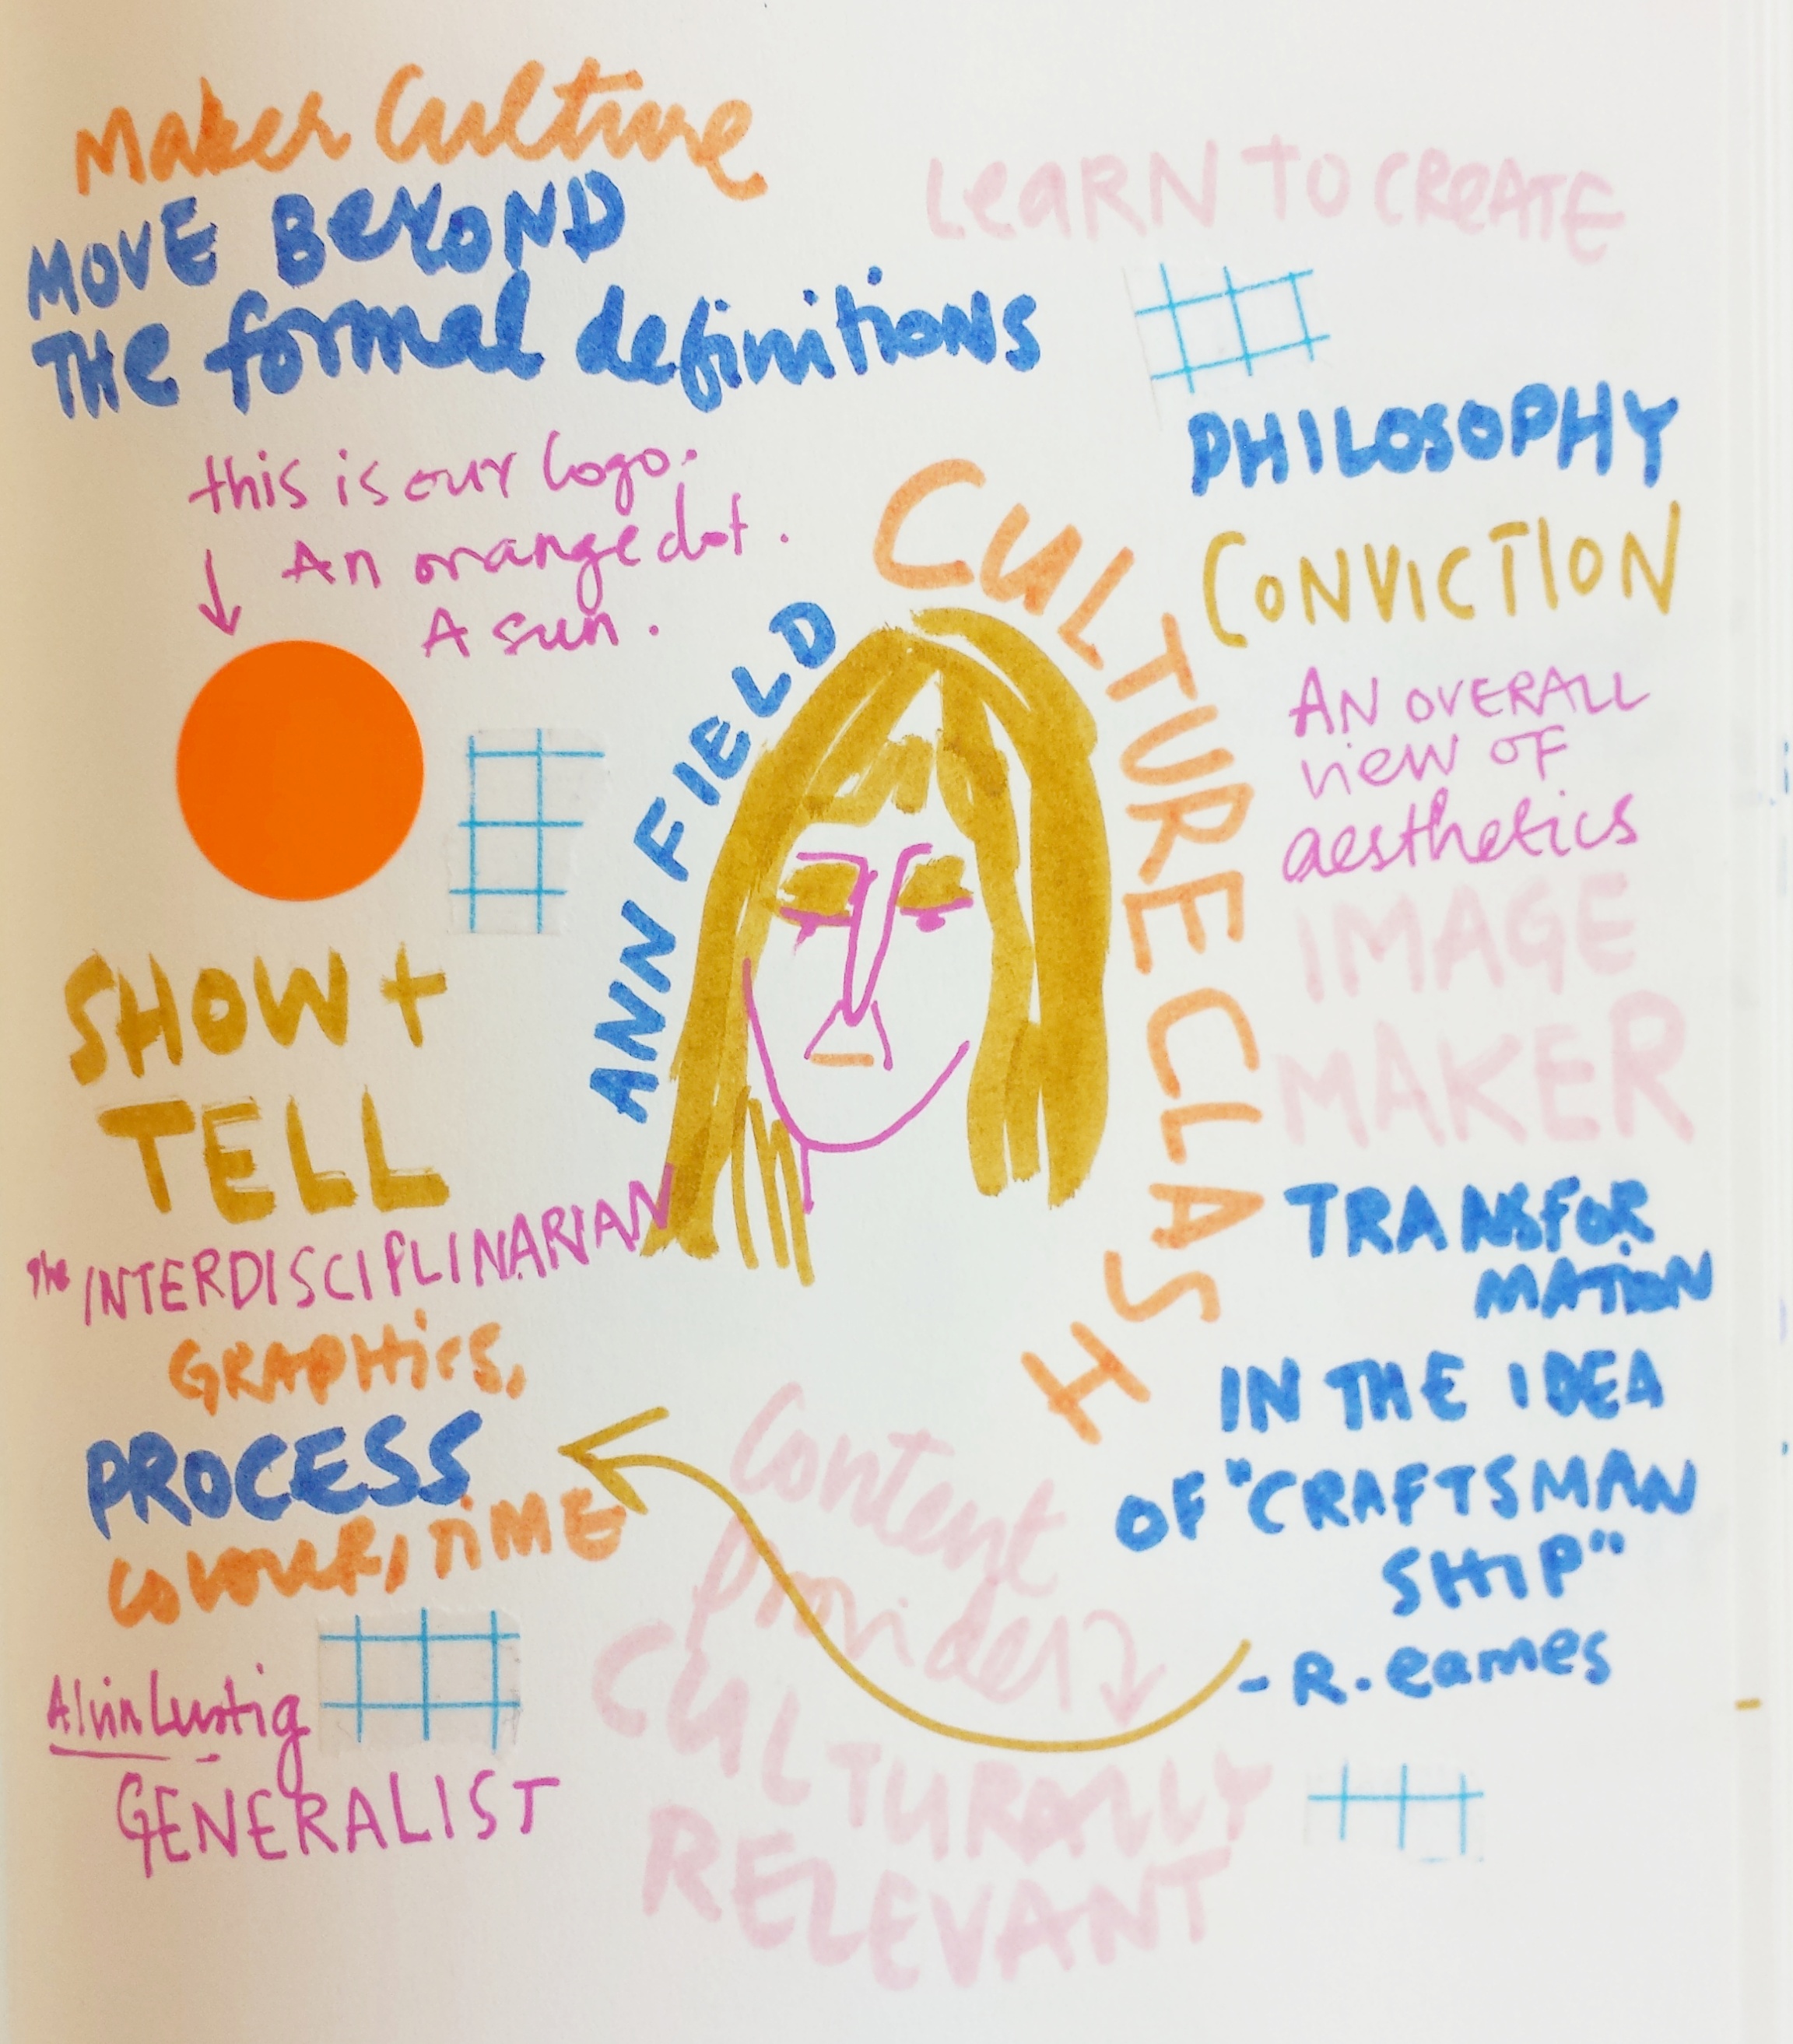 Maker Culture
MOVE BEYOND
THE formal definitions
this is our logo.
An orange dot.
A sun.
LEARN TO CREATE
PHILOSOPHY
CONVICTION
AN OVERALL
view OF
aesthetics
IMAGE
MAKER
ANN FIELD
CULTURE CLASH
SHOW +
TELL
the INTERDISCIPLINARIAN
GRAPHICS,
PROCESS
COLOUR, TIME
Alvin Lustig
GENERALIST
TRANSFOR
MATION
IN THE IDEA
OF "CRAFTSMAN
SHIP"
- R. eames
Content
Provider
CULTURALLY
RELEVANT